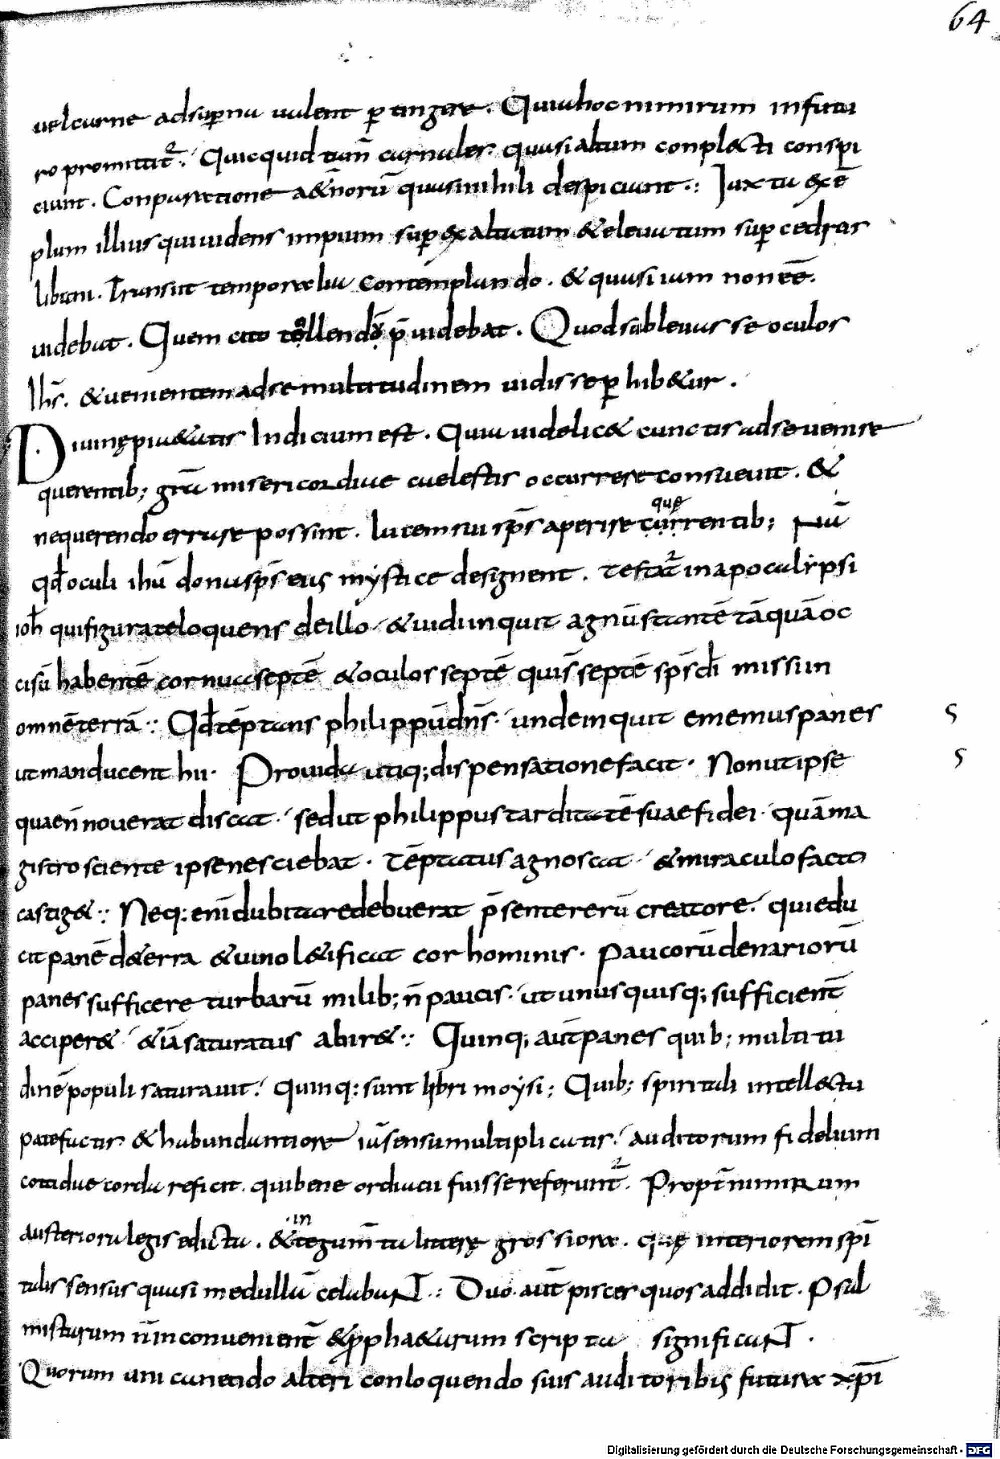 64
uel carne ad superna ualent ꝑtingere. Quia hoc nimirum in futu
ro promittit᷑. Quicquid tam̄ carnales quasi altum conplecti conspi
ciunt. Conparatione aet̄norū quasi nihili despiciunt. Iuxta exē
plum illius qui uidens impium suꝑexaltatum & eleuatum suꝑ cedros
libani. Transiit temporalia contemplando. & quasi iam non eē.
uidebat. Quem cito tollendū p̄uidebat. Quod subleuas se oculos
Ihs̄. & uenientem ad se multitudinem uidisse ꝑhib&ur.
Diuinę pi&atis Indicium est. Quia uidelic& cunctis ad se uenire
querentib; gr̄a misericordiae caelestis occurrere consueuit. &
ne querendo errare possint. lucem sui sp̄s aperire currentib; Nā
que
qd̄ oculi ihū dona sp̄s eius mystice designent. Testat᷑ in apocalypsi
ioh̄ qui figurate loquens de illo & uidi inquit agnū stantē tāquā oc
cisū habentē cornua septē & oculos septē qui s̄ septē sp̄s dī missi in
omnē terrā. Qd̄ tēptans philippū dn̄s. unde inquit ememus panes
ut manducent hii. Prouida utiq; dispensatione facit. Non ut ipse
quae n̄ nouerat discat. sed ut philippus tarditatē suae fidei quā ma
gistro sciente ipse nesciebat. Tēptatus agnoscat & miraculo facto
castig&. Neq; enī dubitare debuerat p̄sente rerū creatore. qui edu
cit panē de terra & uino l&ificat cor hominis. Paucorū denariorū
panes sufficere turbarū milib; n̄ paucis. ut unusquisq; sufficient̄
acciper& & iā saturatus abir&. Quinq; aut̄ panes quib; multitu
dinē populi saturauit. quinq; sunt libri moysi; Quib; spiritali intellectu
patefactis & habundantiore iā sensu multiplicatis. auditorum fidelium
cotidiae corda reficit. qui bene ordiacii fuisse referunt᷑. Propt̄ nimirum
austeriora legis edicta. & tegum̄ta litterę grossiora. quę interiorem spī
in
talis sensus quasi medullā celabaNT. Duo aut̄ pisces quos addidit. Psal
mistarum n̄ inconuenient̄ & ꝓpha&arum scripta significaNT.
Quorum uni canendo alteri conloquendo suis auditoribus futura xp̄i
Digitalisierung gefördert durch die Deutsche Forschungsgemeinschaft - DFG